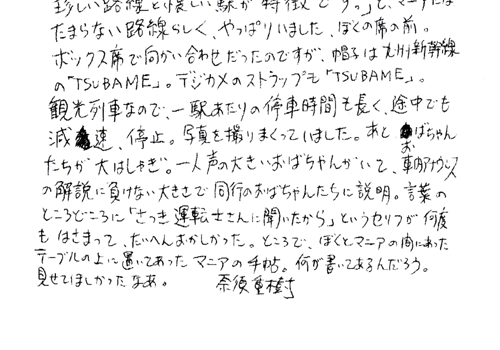 珍しい路線と懐しい駅が特徴です。」で、マニアには
たまらない路線らしく、やっぱりいました、ぼくの席の前。
ボックス席で向かい合わせだったのですが、帽子は九州新幹線
の「TSUBAME」。デジカメのストラップも「TSUBAME」。
観光列車なので、一駅あたりの停車時間も長く、途中でも
減速、停止。写真を撮りまくっていました。あとおばちゃん
たちが大はしゃぎ。一人声の大きいおばちゃんがいて、車内アナウンス
の解説に負けない大きさで同行のおばちゃんたちに説明。言葉の
ところどころに「さっき運転士さんに聞いたから」というセリフが何度
もはさまって、たいへんおかしかった。ところで、ぼくとマニアの間にあった
テーブルの上に置いてあったマニアの手帖。何が書いてあるんだろう。
見せてほしかったなあ。 奈須重樹